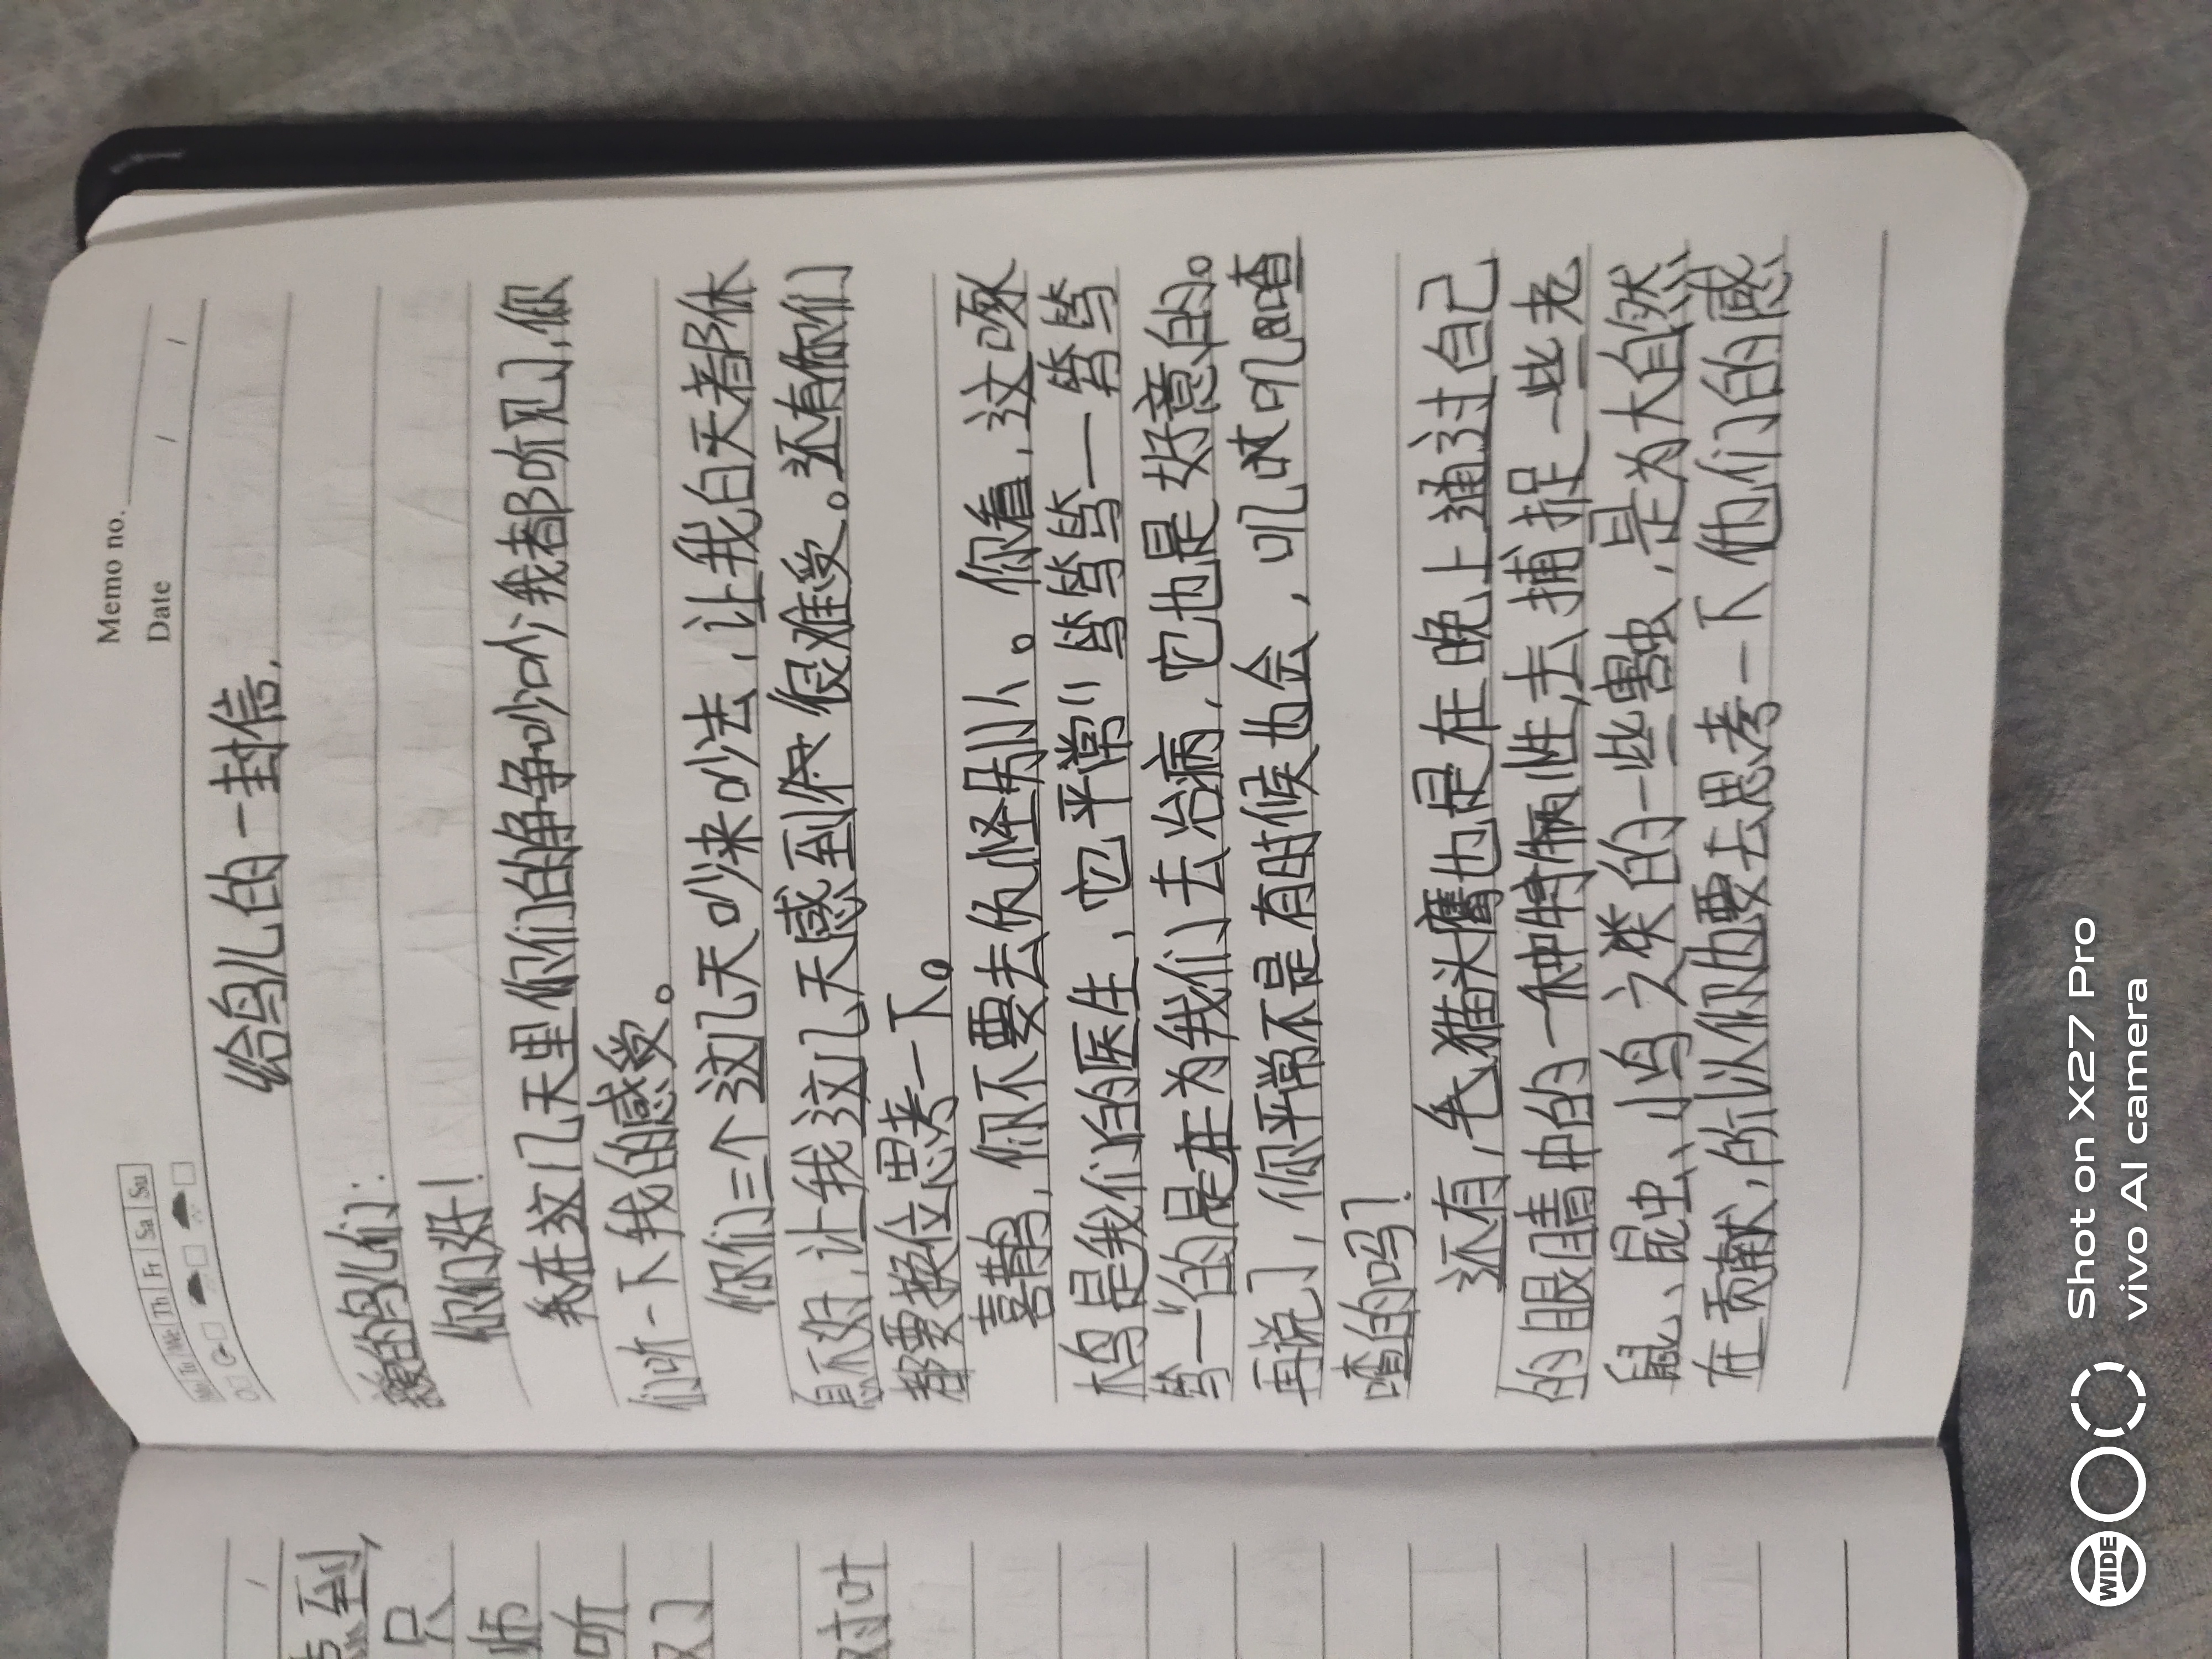 Memo no.
Mo Tu We Th Fr Sa Su
Date / /
给鸟儿的一封信,
的鸟儿们:
你们好!
我在这几天里你们的争争吵吵我都听见了,你
们听一下我的感受。
你们三个这几天吵来吵去,让我白天都休
息不好,让我这几天感到 很难受。还有你们
都要换位思考一下。
喜鹊,你不要去伤怪别人。你看,这啄
木鸟是我们的医生,它平常"笃笃笃——笃笃
笃—"的是在为我们去治病,它也是好意的。
再说了,你平常不是有时候也会,叽吱叽喳
喳的吗?
还有,毛猫头鹰也是在晚上通过自己
的眼睛中的一种 性去捕捉一些老
鼠、昆虫、小鸟之类的一些害虫,是为大自然
在贡献,所以你也要去思考一下他们的感
到,
只
师
听
了
对叶
WIDE
Shot on X27 Pro
vivo AI camera